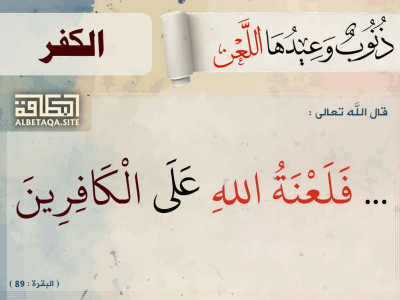 ذُنُوبٌ وَعِيدُهَا اللَّعْن
الكفر
البطاقة
ALBETAQA.SITE
قال الله تعالى :
... فَلَعْنَةُ اللهِ عَلَى الْكَافِرِينَ
( البقرة : 89 )